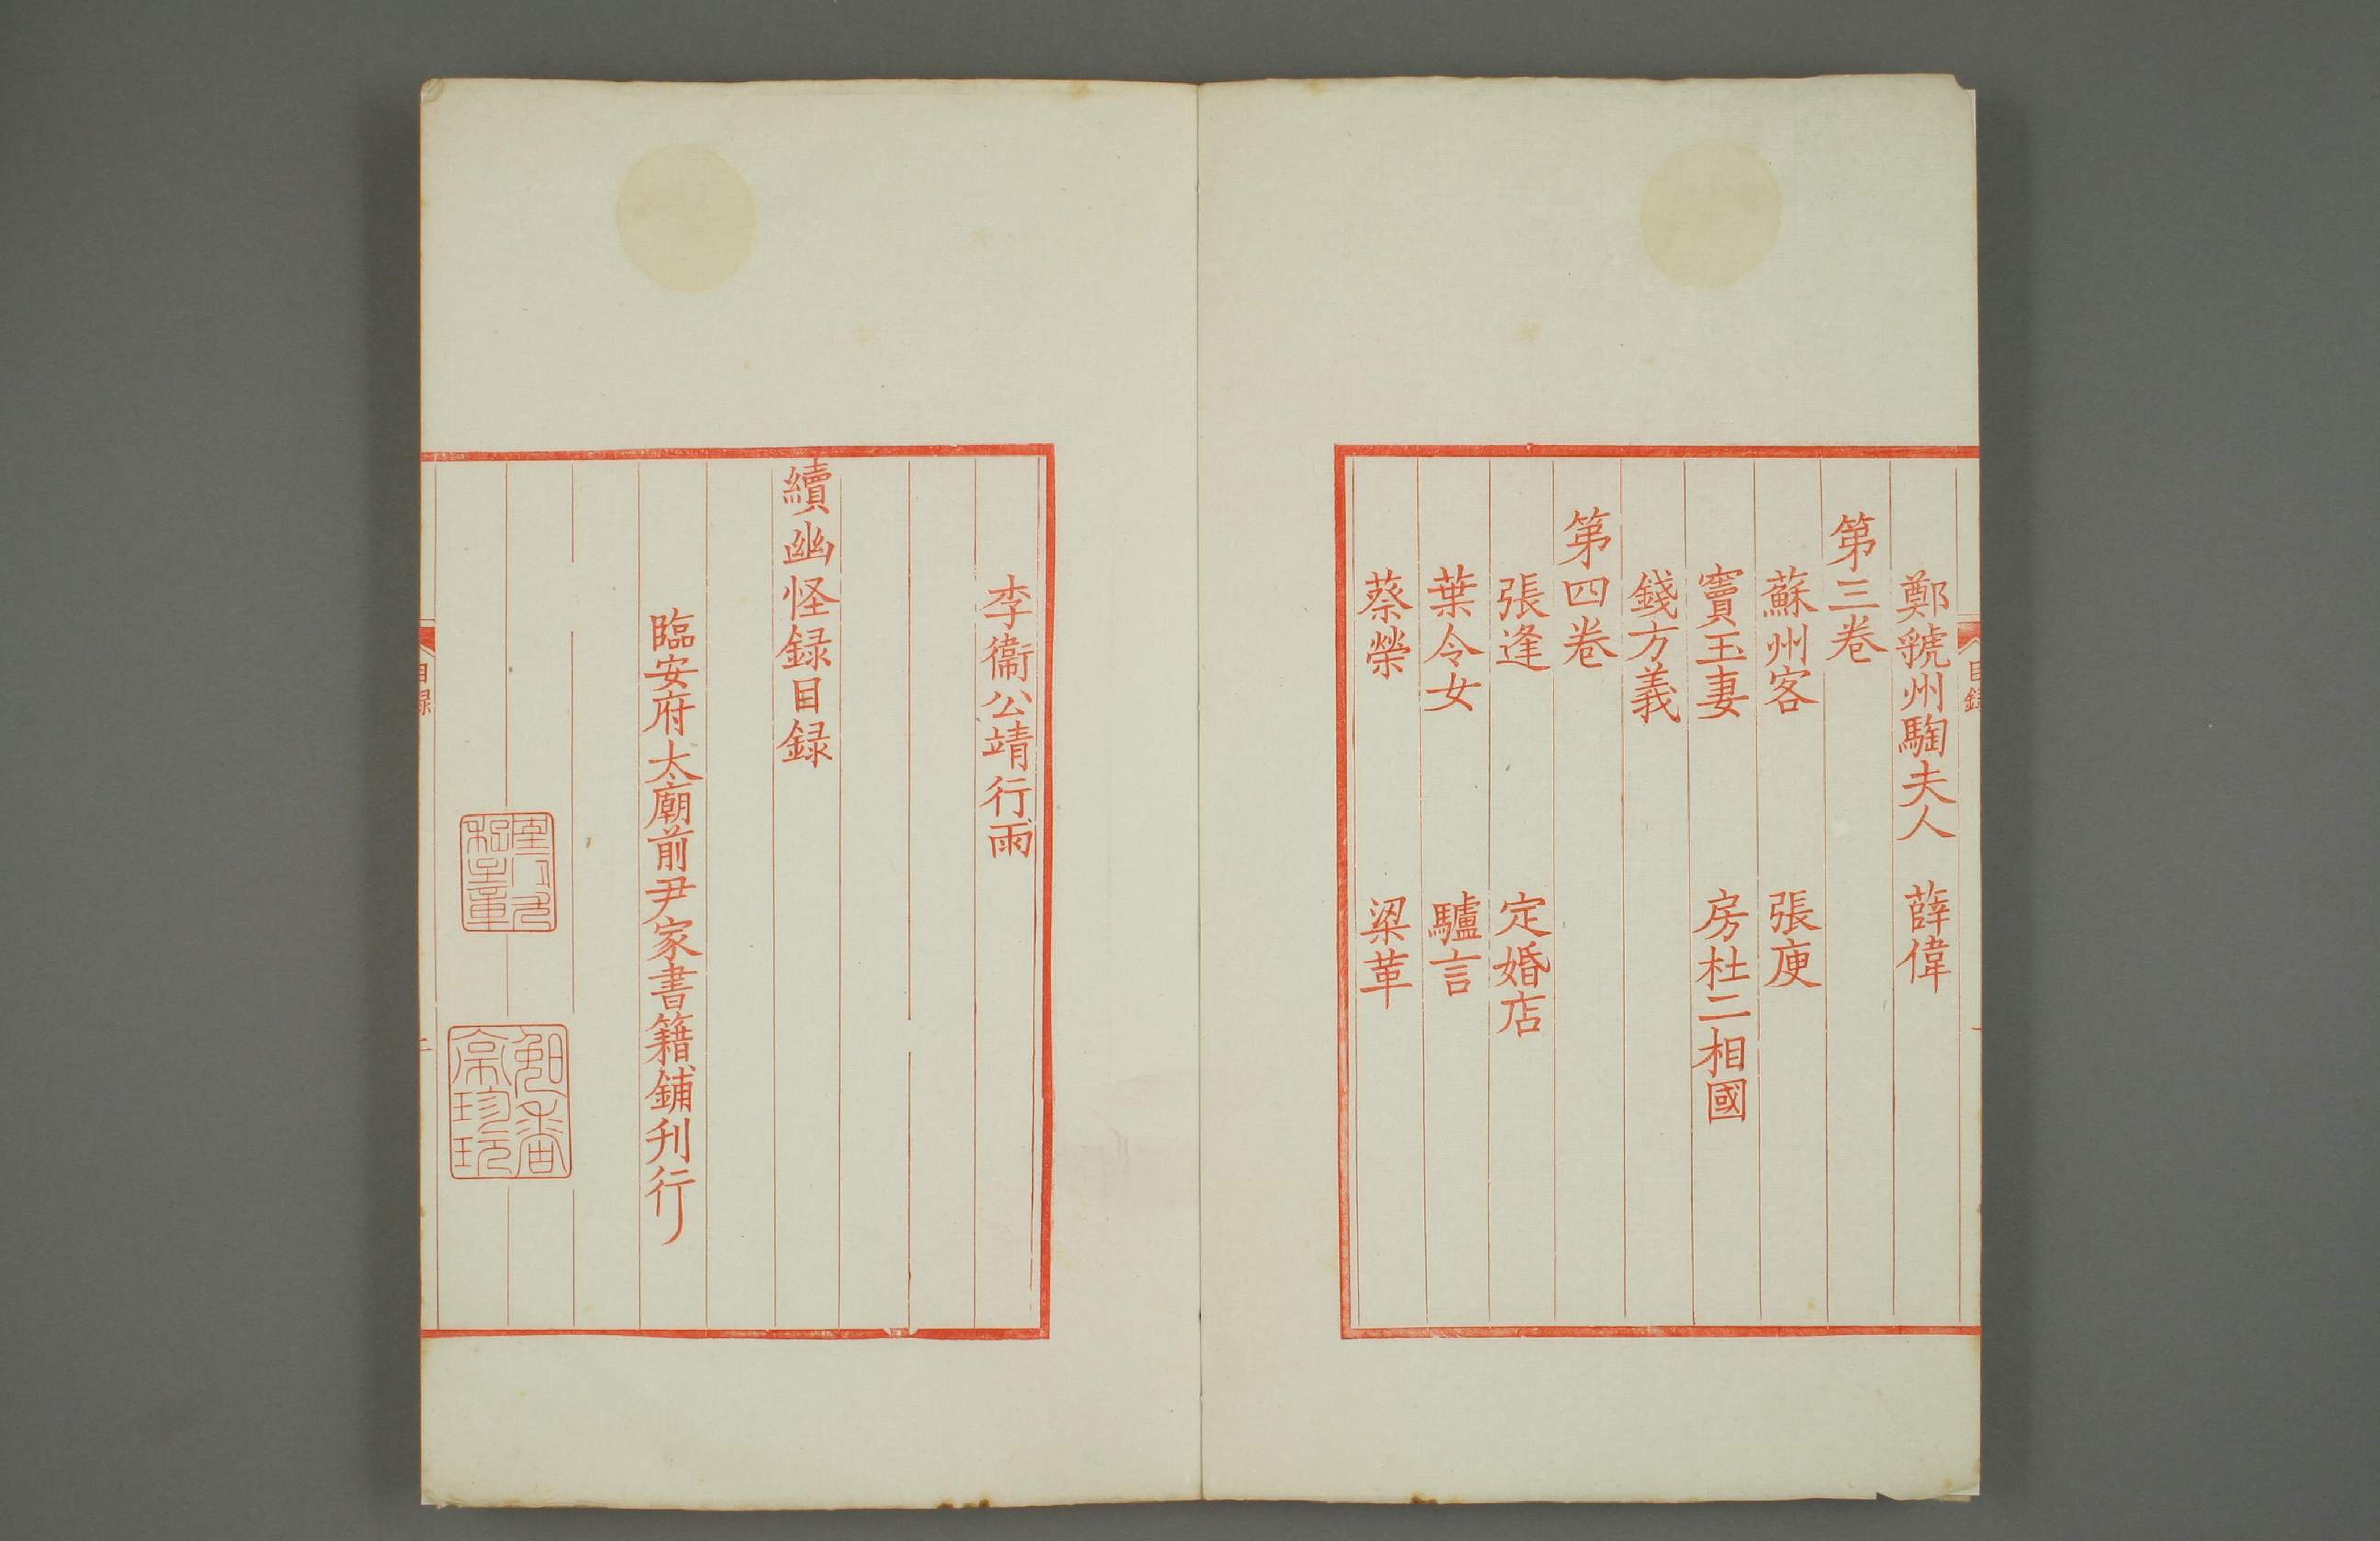 鄭虢州騊夫人　薛偉
第三卷
蘇州客　張庾
竇玉妻　房杜二相國
錢方義
第四卷
張逢　定婚店
葉令女　驢言
蔡榮　梁革
目錄
李衞公靖行雨
續幽怪録目録
臨安府太廟前尹家書籍鋪刋行
目録
二